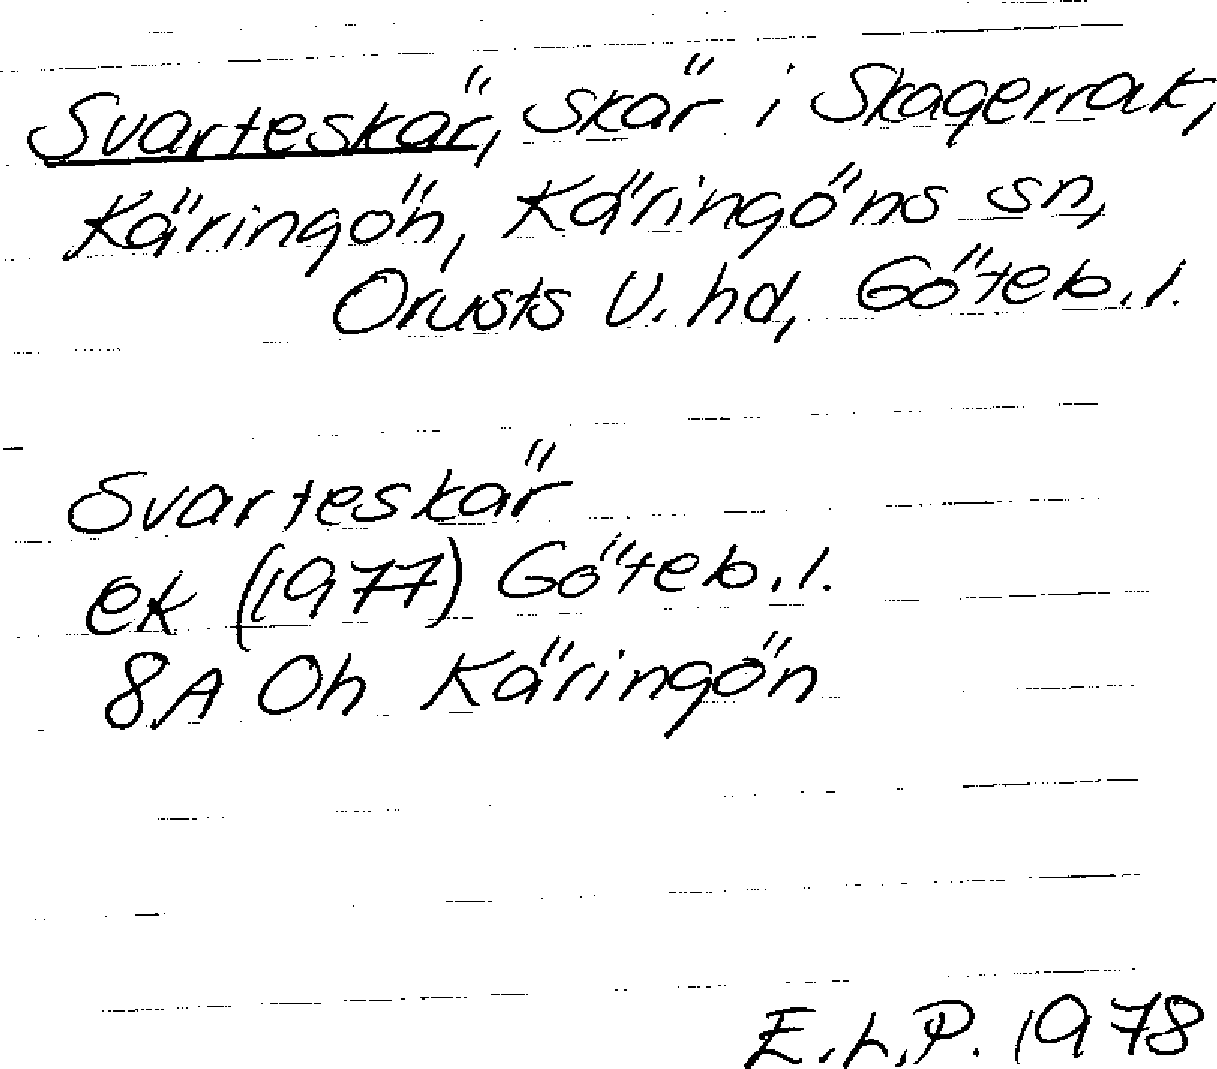 Svarteskär, skär i Skagerrak,
Käringön, Käringöns sn,
Orusts V. hd, Göteb. l.
Svarteskär
ek (1977) Göteb. l.
8A Oh Käringön
E.L.P. 1978